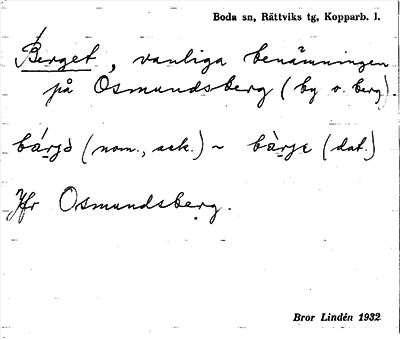 Boda sn, Rättviks tg, Kopparb. l.
Berget, vanliga benämningen
på Osmundsberg (by o. berg).
bárjò (nom., ack.) ~ bàrje (dat.)
Jfr Osmundsberg.
Bror Lindén 1932